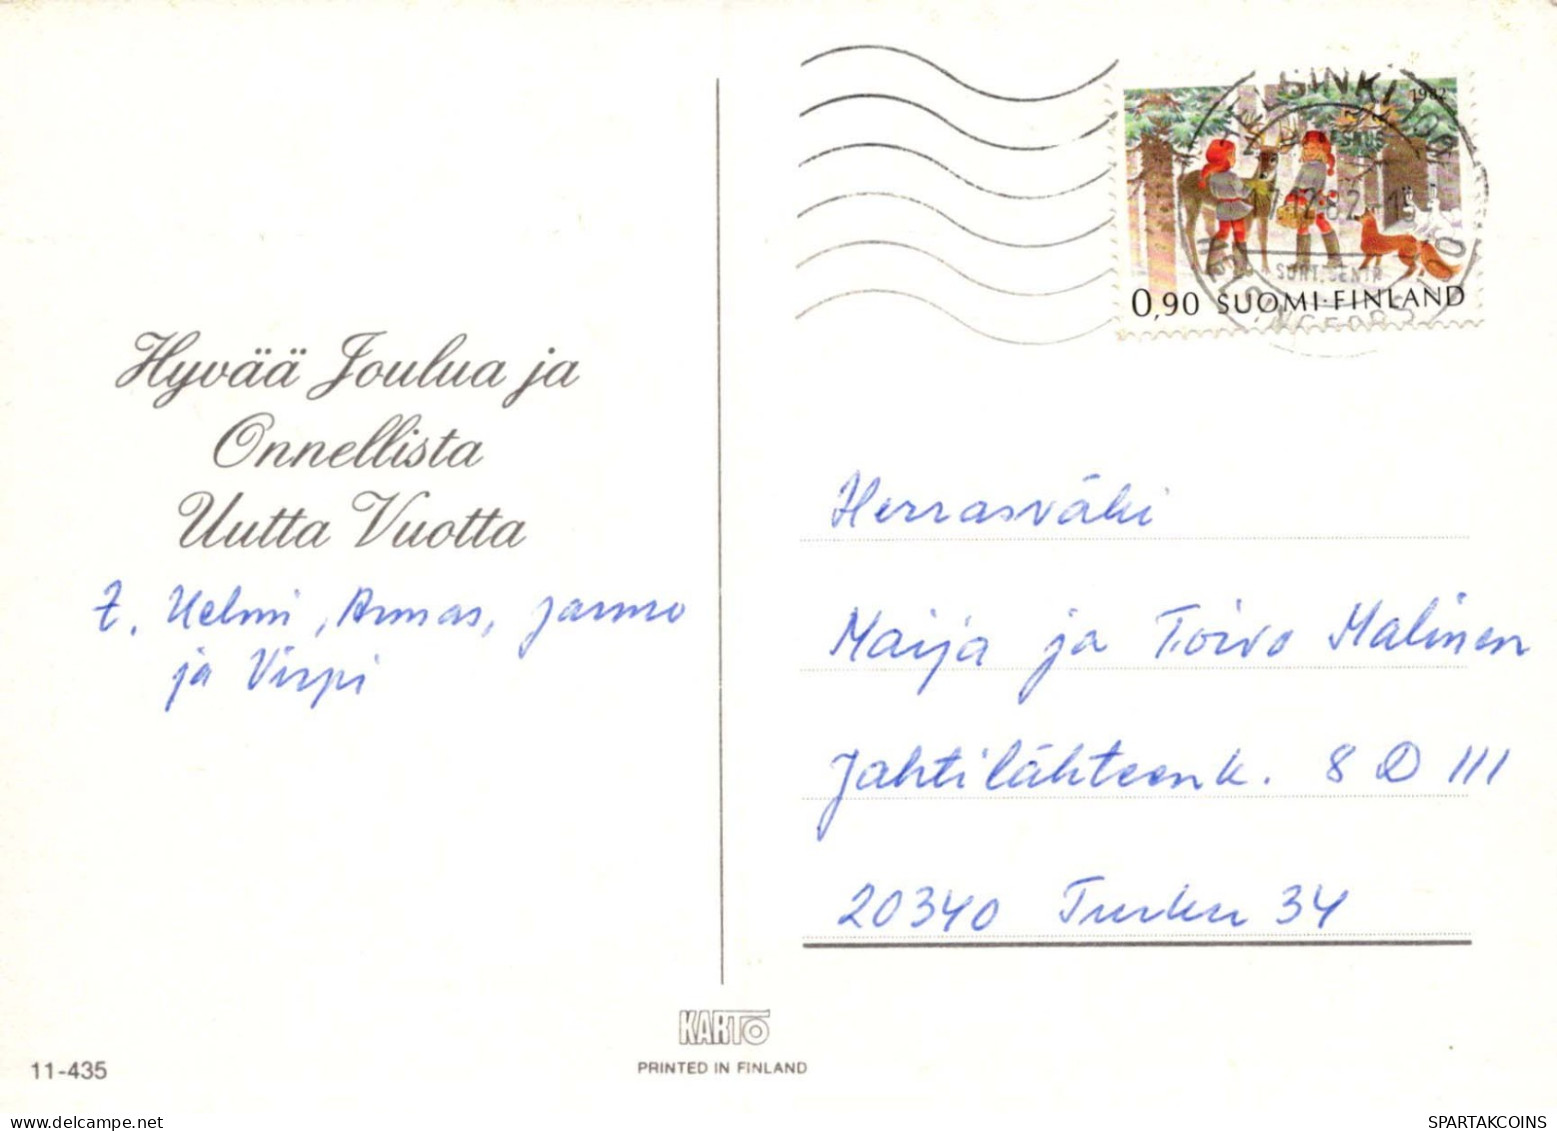 Hyvää Joulua ja
Onnellista
Uutta Vuotta
t. Helmi, Armas, Jarmo
ja Virpi
1982
0,90 SUOMI·FINLAND
HELSINKI
17.12.82
HELSINGFORS
Herrasväki
Maija ja Toivo Malinen
Jahtilähteenk. 8 D 111
20340 Turku 34
KARTO
PRINTED IN FINLAND
11-435
SPARTAKCOINS